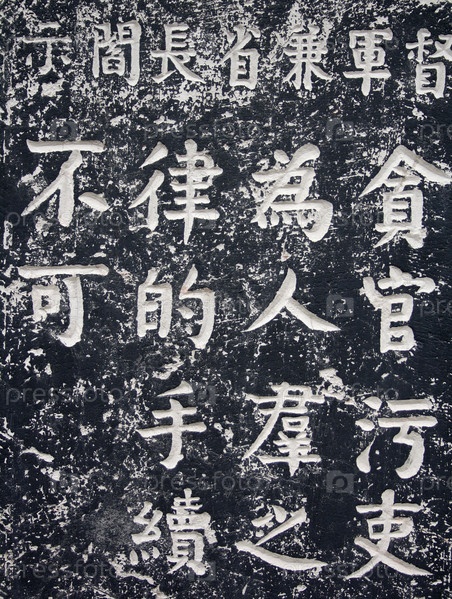 督軍兼省長閻示
貪官污吏
為人羣之
律的手續
不可